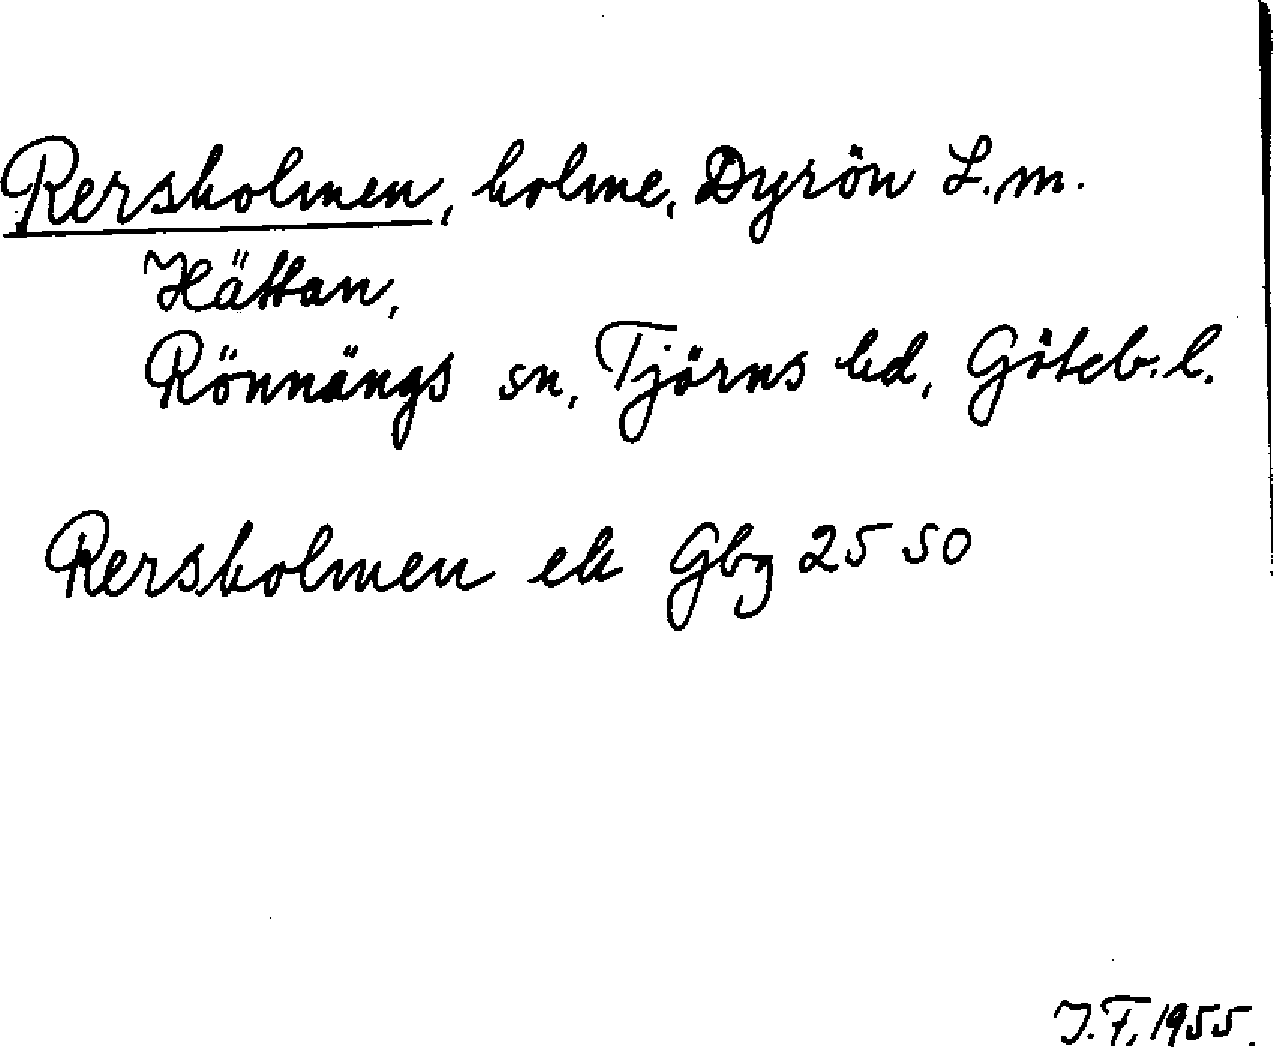 Rersholmen, holme, Dyrön L.m.
Hättan,
Rönnängs sn, Tjörns hd, Göteb. l.
Rersholmen ek Gbg 25 50
J.F. 1955.